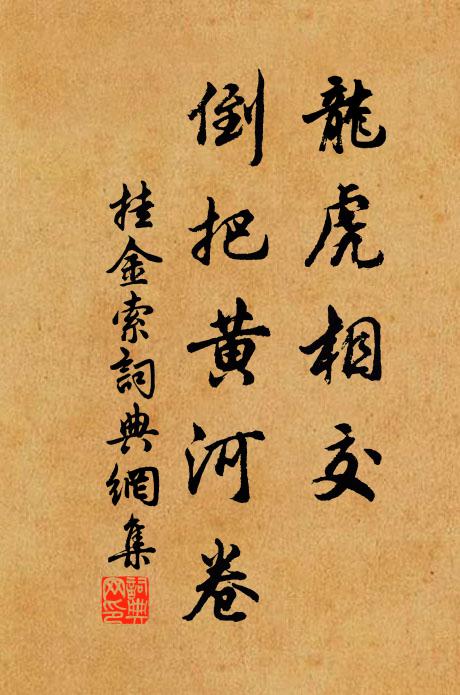 龍虎相交
倒把黄河卷
挂金索詞典網集
詞典
网印